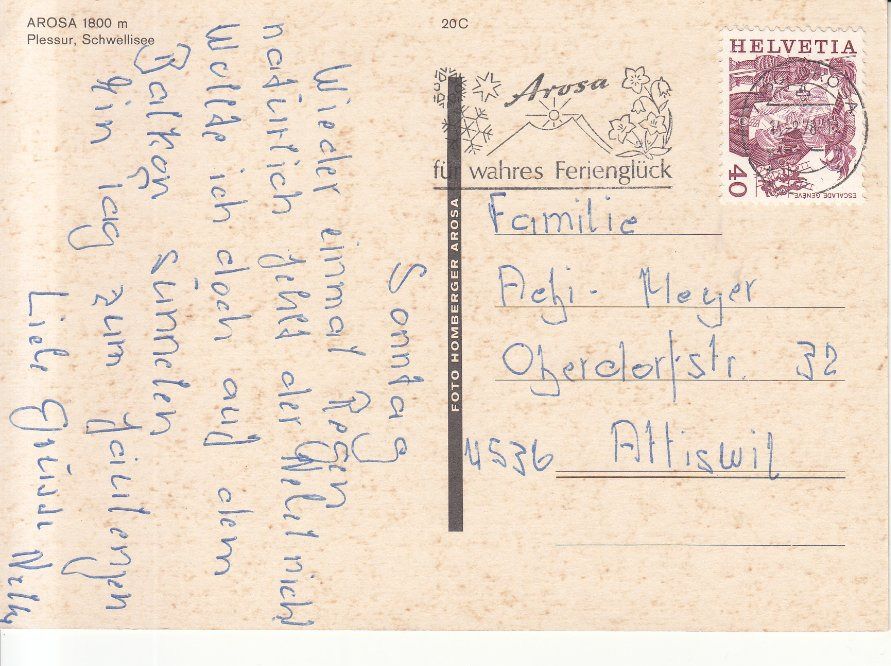 AROSA 1800 m
Plessur, Schwellisee
20C
HELVETIA
40
ESCALADE GENÈVE
Arosa
für wahres Ferienglück
FOTO HOMBERGER AROSA
Sonntag
Wieder einmal Regen
natürlich geht der Nebel nicht
Wollte ich doch auf dem
Balkon sünnelen
Ein Tag zum
Liebe Grüsse Nelly
Familie
Aebi - Meyer
Oberdorfstr. 32
4536 Attiswil